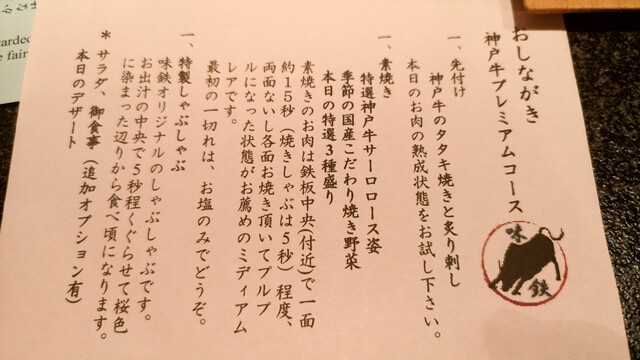 おしながき
神戸牛プレミアムコース
味
鉄
一、先付け
神戸牛のタタキ焼きと炙り刺し
本日のお肉の熟成状態をお試し下さい。
一、素焼き
特選神戸牛サーロロース姿
季節の国産こだわり焼き野菜
本日の特選3種盛り
素焼きのお肉は鉄板中央(付近)で一面
約15秒(焼きしゃぶは5秒)程度、
両面ないし各面お焼き頂いてプルプ
ルになった状態がお薦めのミディアム
レアです。
最初の一切れは、お塩のみでどうぞ。
一、特製しゃぶしゃぶ
味鉄オリジナルのしゃぶしゃぶです。
お出汁の中央で5秒程くぐらせて桜色
に染まった辺りから食べ頃になります。
*サラダ、御食事(追加オプション有)
本日のデザート
arded
e fair